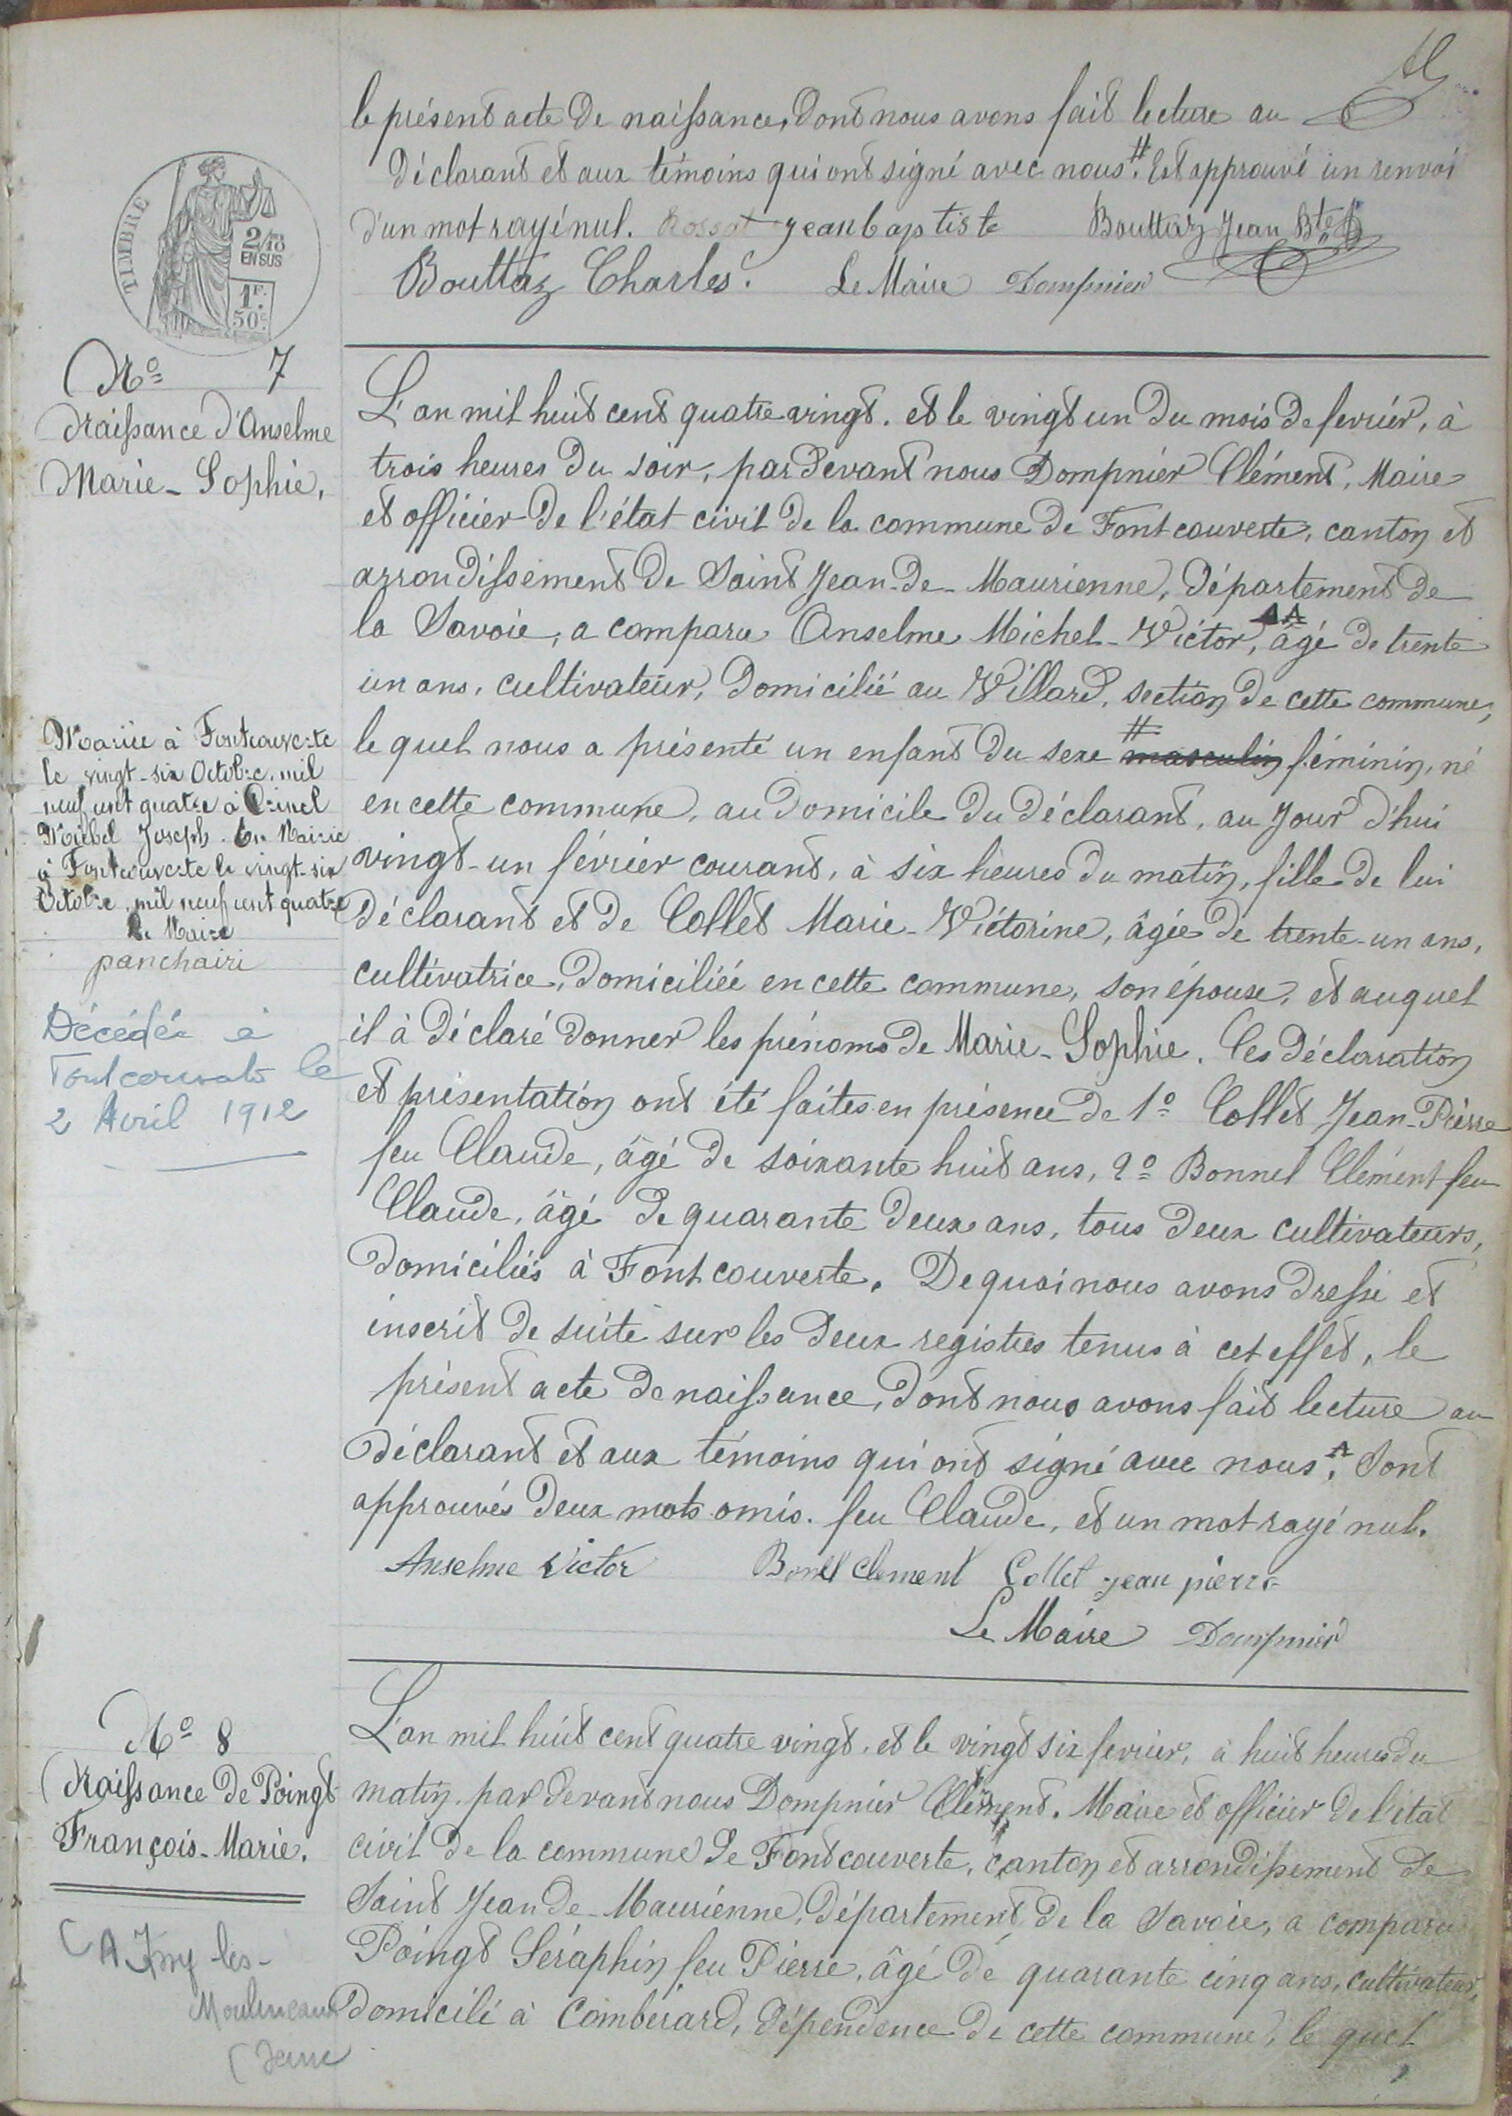 le présent acte de naissance, dont nous avons fait lecture au
déclarant et aux témoins qui ont signé avec nous.# Est approuvé un renvoi
d'un mot rayé nul. Rossat jean baptiste Bouttaz Jean Bte
Bouttaz Charles. Le Maire Dompnier
TIMBRE
2/10
EN SUS
1F.
50c.
No 7
Naissance d'Anselme
Marie-Sophie,
L'an mil huit cent quatre vingt. et le vingt un du mois de fevrier, à
trois heures du soir, par devant nous Dompnier Clément, Maire
et officier de l'état civil de la commune de Fontcouverte, canton et
arrondissement de Saint Jean-de-Maurienne, département de
la Savoie, a comparu Anselme Michel-Victor, âgé de trente
un ans, cultivateur, domicilié au Villard, section de cette commune,
le quel nous a présenté un enfant du sexe # masculin féminin, né
en cette commune, au domicile du déclarant, au jour d'hui
vingt-un février courant, à six heures du matin, fille de lui
déclarant et de Collet Marie-Victorine, âgée de trente-un ans,
cultivatrice, domiciliée en cette commune, son épouse, et auquel
il à déclaré donner les prénoms de Marie-Sophie. Ces déclaration
et présentation ont été faites en présence de 1o Collet Jean-Pierre
feu Claude, âgé de soixante huit ans, 2o Bonnel Clément feu
Claude, âgé de quarante deux ans, tous deux cultivateurs,
domiciliés à Fontcouverte. De quoi nous avons dressé et
inscrit de suite sur les deux registres tenus à cet effet, le
présent acte de naissance, dont nous avons fait lecture au
déclarant et aux témoins qui ont signé avec nous. Sont
approuvés deux mots omis. feu Claude, et un mot rayé nul.
Anselme Victor Bonel Clement Collet jean pierre
Le Maire Dompnier
Mariée à Fontcouverte
le vingt-six Octobre mil
neuf cent quatre à
Michel Joseph. En Mairie
à Fontcouverte le vingt-six
Octobre mil neuf cent quatre
Le Maire
Décédée à
Fontcouverte le
2 Avril 1912
No 8
Naissance de Poingt
François-Marie.
A Issy-les-
Moulineaux
(Seine
L'an mil huit cent quatre vingt, et le vingt six fevrier, à huit heures du
matin, par devant nous Dompnier Clément. Maire et officier de l'état
civil de la commune de Fontcouverte, canton et arrondissement de
Saint Jean de Maurienne, département de la Savoie, a comparu
Poingt Séraphin feu Pierre, âgé de quarante cinq ans, cultivateur,
domicilé à Combérard, dépendence de cette commune, le quel